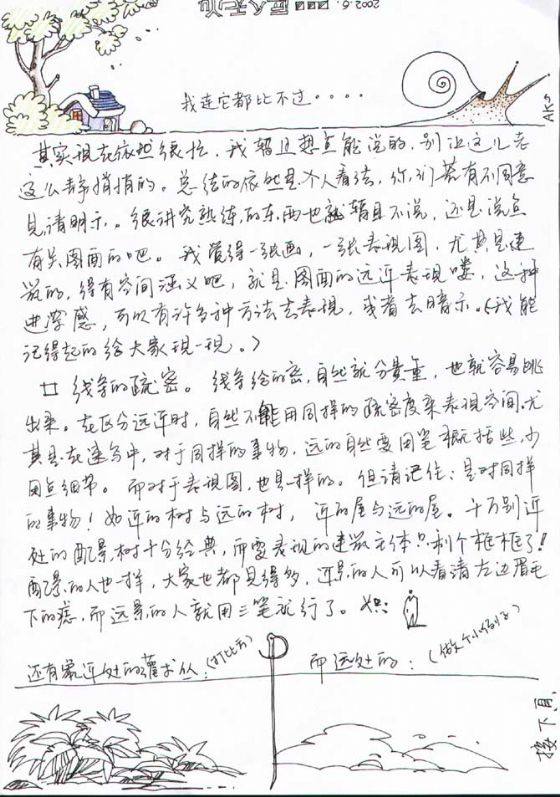 2002.6.
我连它都比不过····
AKS
其实现在依然很忙，我暂且想点能说的，别让这儿老
这么静悄悄的。总结的依然是个人看法，你们若有不同意
见请明示。很讲究熟练的东西也就暂且不说，还是说点
有关图面的吧。我觉得一张画，一张表现图，尤其是建
筑的，得有空间涵义吧，就是图面的远近表现喽，这种
进深感，可以有许多种方法去表现，或者去暗示。（我能
记得起的给大家现一现。）
线条的疏密。线条给的密，自然就分量重，也就容易跳
出来。在区分远近时，自然不能用同样的疏密度来表现空间，尤
其是在速写中，对于同样的事物，远的自然要用笔概括些，少
用点细节。而对于表现图，也是一样的。但请记住：是对同样
的事物！如近的树与远的树，近的屋与远的屋。千万别近
处的配景树十分经典，而要表现的建筑主体只剩个框框了！
配景的人也一样，大家也都见得多，近景的人可以看清左边眉毛
下的痣，而远景的人就用三笔就行了。如：
还有最近处的灌木丛：（打比方） 而远处的：（做个小例子）
接下页